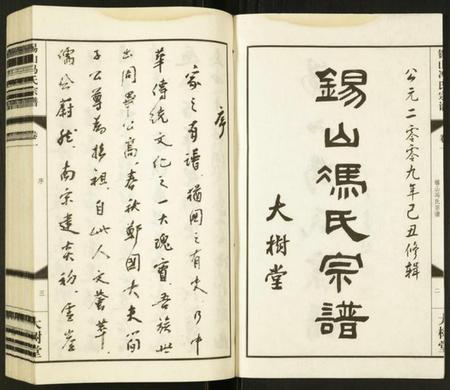 公元二〇〇九年己丑修輯
錫山馮氏宗譜
大樹堂
錫山馮氏宗譜
二
大樹堂
序
家之有譜猶國之有史乃中
華傳統文化之一大瑰寶吾族世
出周畢公高春秋鄭國大夫簡
子公尊為始祖自此人文薈萃
儒蔚南宋建炎初雪崖
錫山馮氏宗譜
卷一
序
三
大樹堂